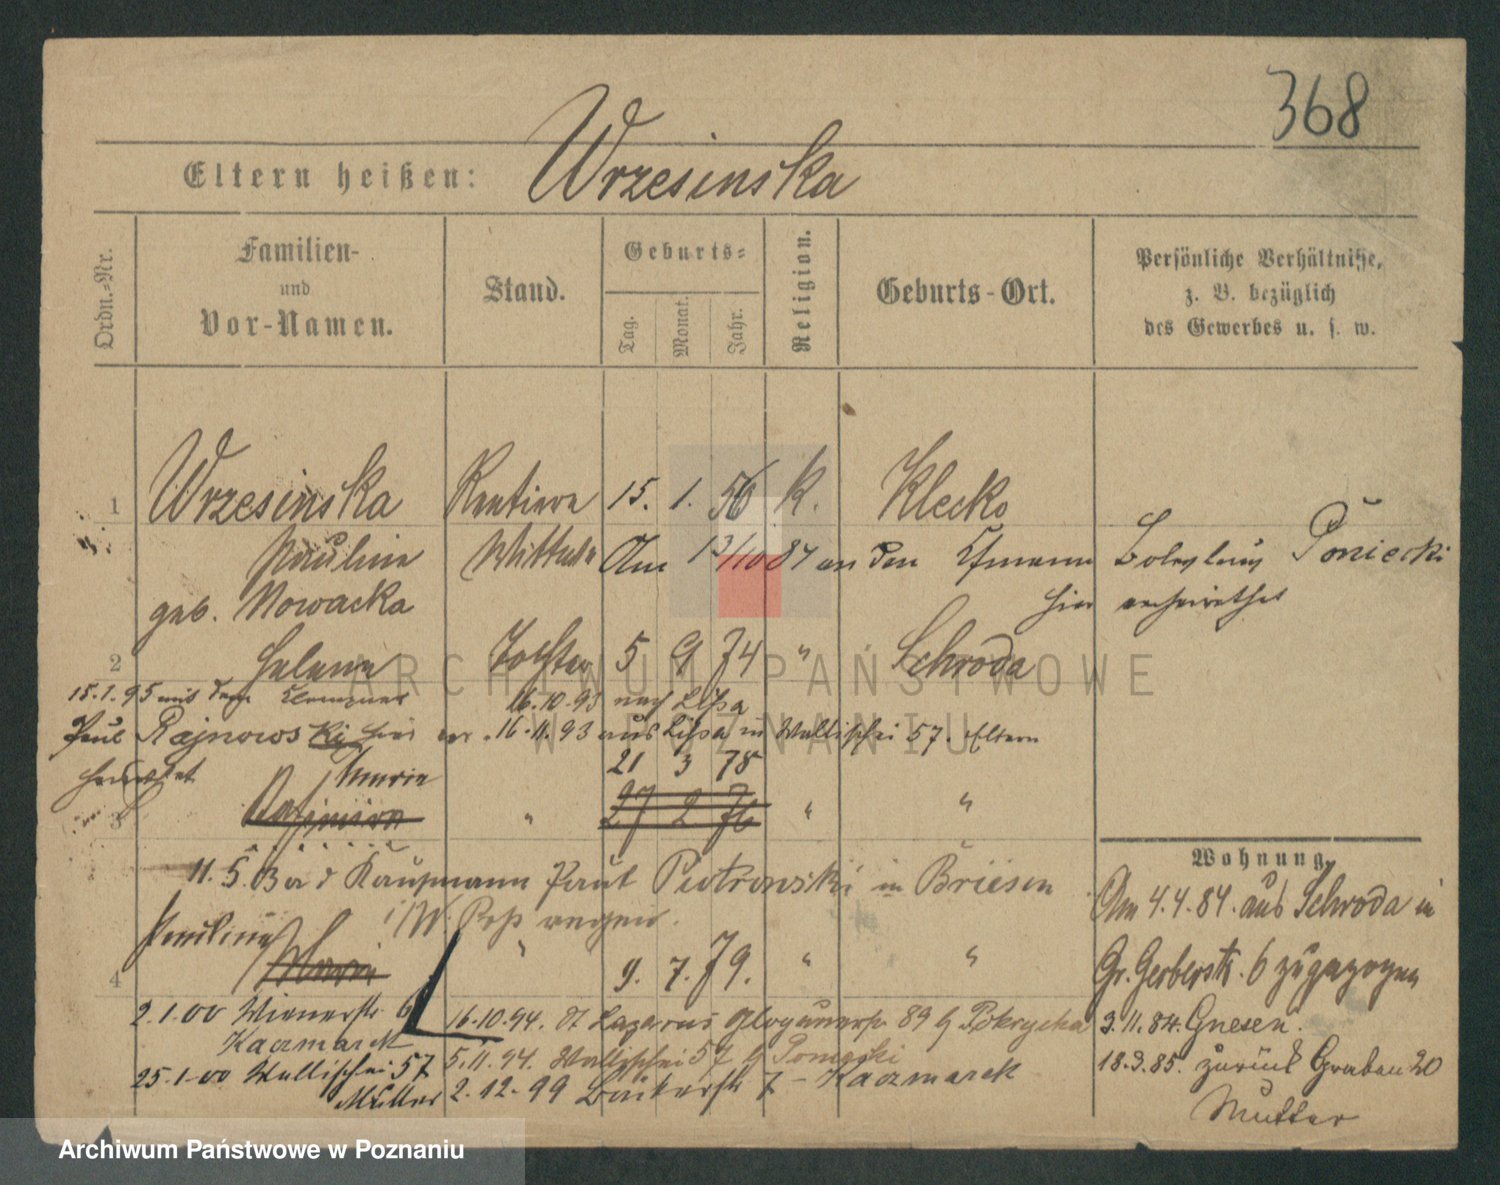 368
Eltern heißen: Wrzesinska
Ordn.-Nr.
Familien-
und
Vor-Namen.
Stand.
Geburts-
Tag.
Monat.
Jahr.
Religion.
Geburts-Ort.
Persönliche Verhältnisse,
z. B. bezüglich
des Gewerbes u. s. w.
1 Wrzesinska Rentiere 15. 1. 56 k. Klecko
Pauline Wittwe Am 13/10 84 an den Kfmann Boleslaus Poniecki
geb. Nowacka hier verheirathet
2 Helene Tochter 5 9 74 " Schroda
15.1.95 mit dem 16.10.93 nach Lissa
Paul Rajnowski hier 16.11.93 aus Lissa in Wallischei 57. Eltern
Maria 21 3 78
3 " 27 2 76 " "
11. 5. Kaufmann Paul Piotrowski in Briesen
i/W.
Pauline " 9. 7. 79. " "
4 Maria
Wohnung.
Am 4.4.84. aus Schroda in
Gr. Gerberstr. 6 zugezogen
3.11.84. Gnesen.
18.3.85. zurück Graben 20
Mutter
2.1.00 Wienerstr 6
Kaczmarek
25.1.00 Wallischei 57
Müller
16.10.94. St Lazarus Glogauerstr 89 b Pokrycka
5.11.94. Wallischei 57 b Poniecki
2.12.99 Bäckerstr 7 - Kaczmarek
ARCHIWUM PAŃSTWOWE
W POZNANIU
Archiwum Państwowe w Poznaniu